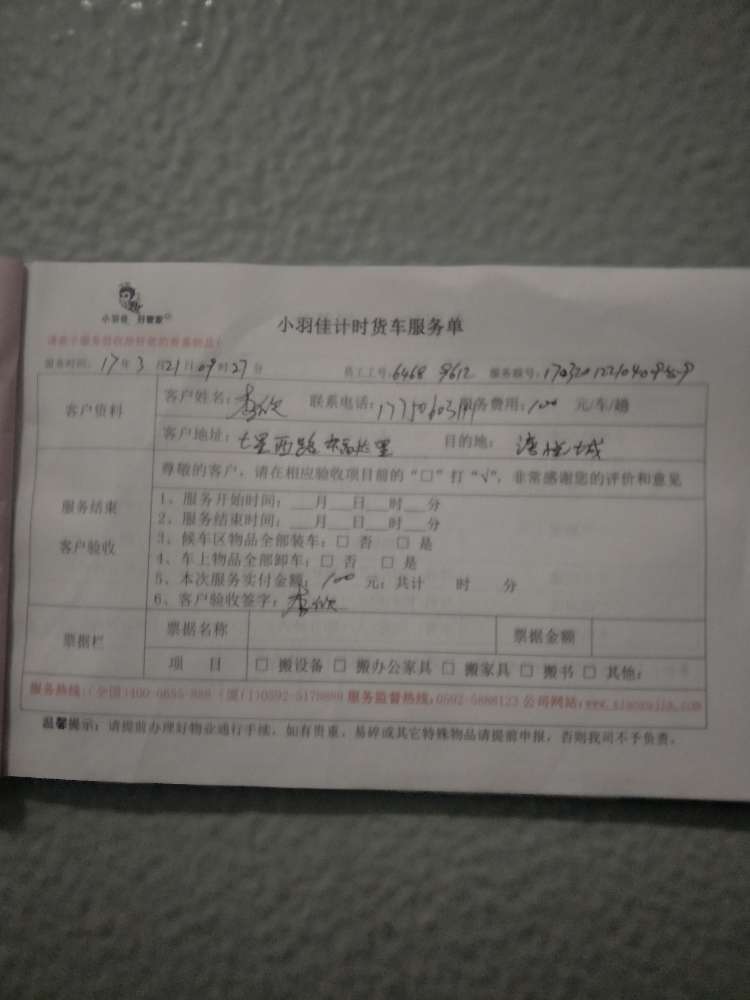 小羽佳 好管家
小羽佳计时货车服务单
服务时间: 17年3月21日09时27分 员工工号: 6468 9612 服务编号:
客户资料
客户姓名: 联系电话: 服务费用: 100 元/车/趟
客户地址: 七星西路 目的地:
服务结束
客户验收
尊敬的客户，请在相应验收项目前的“□”打“√”，非常感谢您的评价和意见
1、服务开始时间：___月___日___时___分
2、服务结束时间：___月___日___时___分
3、候车区物品全部装车：□ 否 □ 是
4、车上物品全部卸车：□ 否 □ 是
5、本次服务实付金额：100 元；共计 时 分
6、客户验收签字：
票据栏
票据名称 票据金额
项 目 □ 搬设备 □ 搬办公家具 □ 搬家具 □ 搬书 □ 其他:
服务热线:(全国)400-0655-888 (厦门)0592-5178888 服务监督热线:0592-5888123 公司网站:
温馨提示：请提前办理好物业通行手续，如有贵重、易碎或其它特殊物品请提前申报，否则我司不予负责。